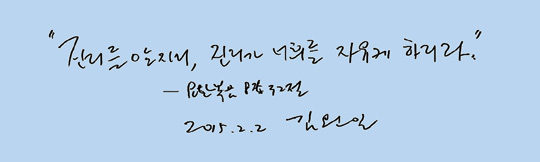 "진리를 알지니, 진리가 너희를 자유케 하리라."
— 요한복음 8장 32절
2015.2.2 김완일